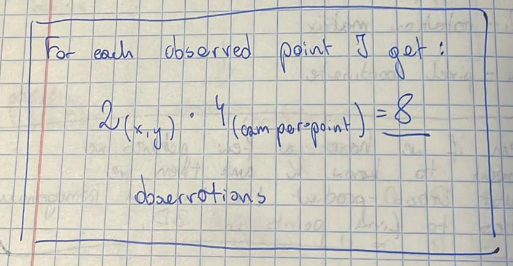 For each observed point I get:
2(x,y) · 4(cam per point) = 8
observations